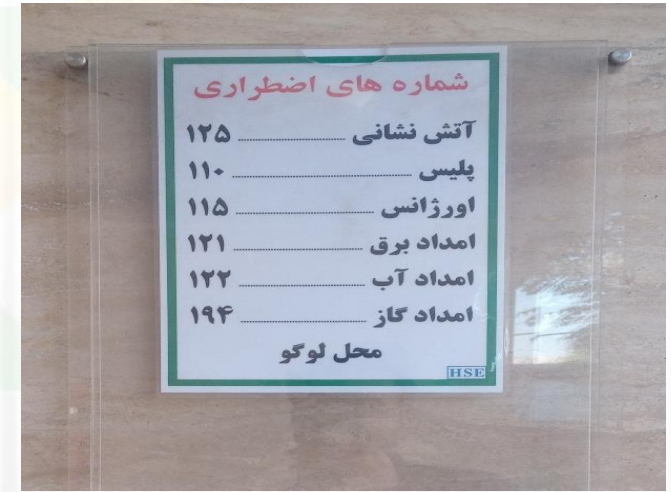 شماره های اضطراری
آتش نشانی ........................ ۱۲۵
پلیس ........................ ۱۱۰
اورژانس ........................ ۱۱۵
امداد برق ........................ ۱۲۱
امداد آب ........................ ۱۲۲
امداد گاز ........................ ۱۹۴
محل لوگو
HSE